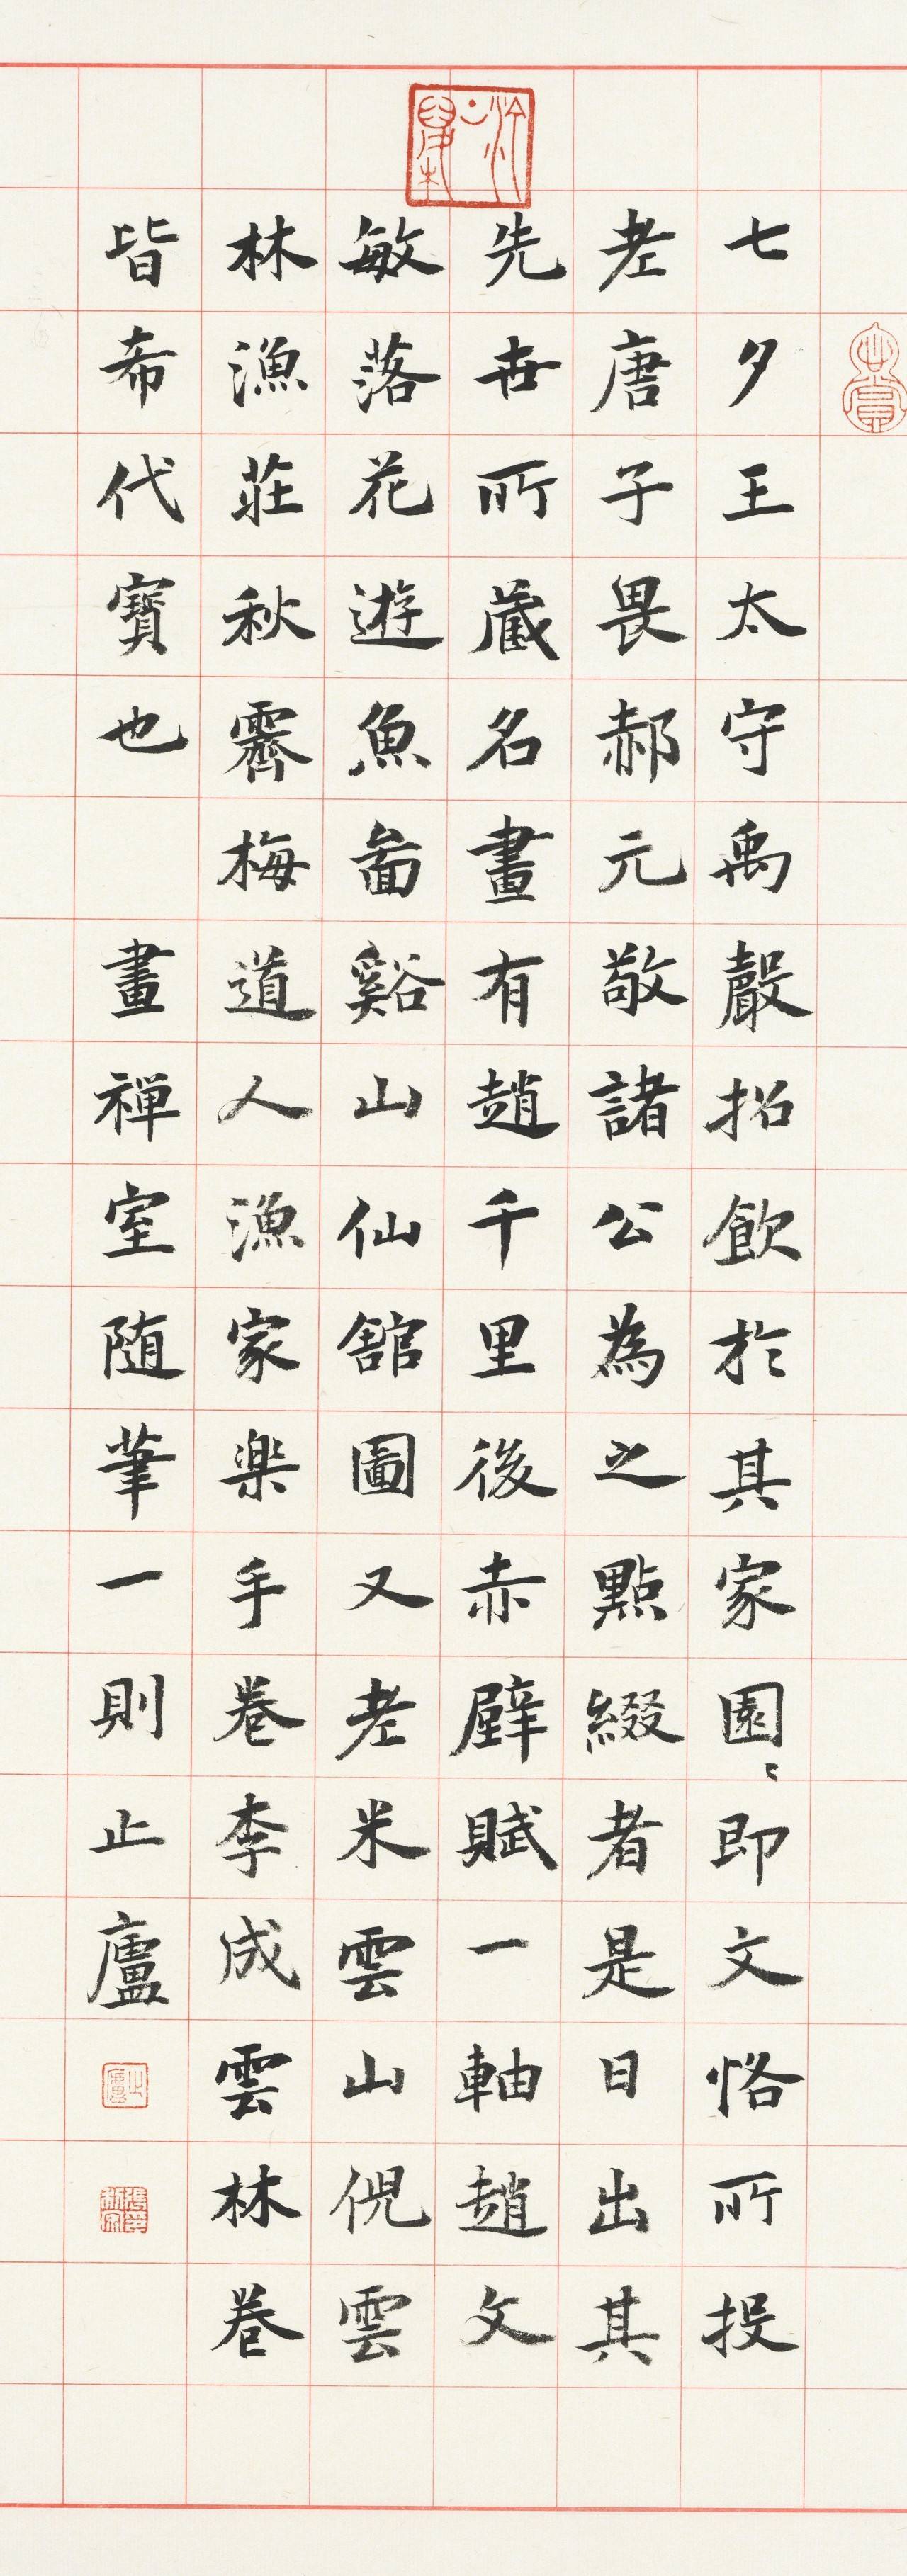 七夕王太守禹嚴招飲於其家園〻即文恪所投
老唐子畏郝元敬諸公為之點綴者是日出其
先世所藏名畫有趙千里後赤壁賦一軸趙文
敏落花遊魚啚谿山仙館圖又老米雲山倪雲
林漁莊秋霽梅道人漁家樂手卷李成雲林卷
皆希代寶也　畫禪室隨筆一則止廬